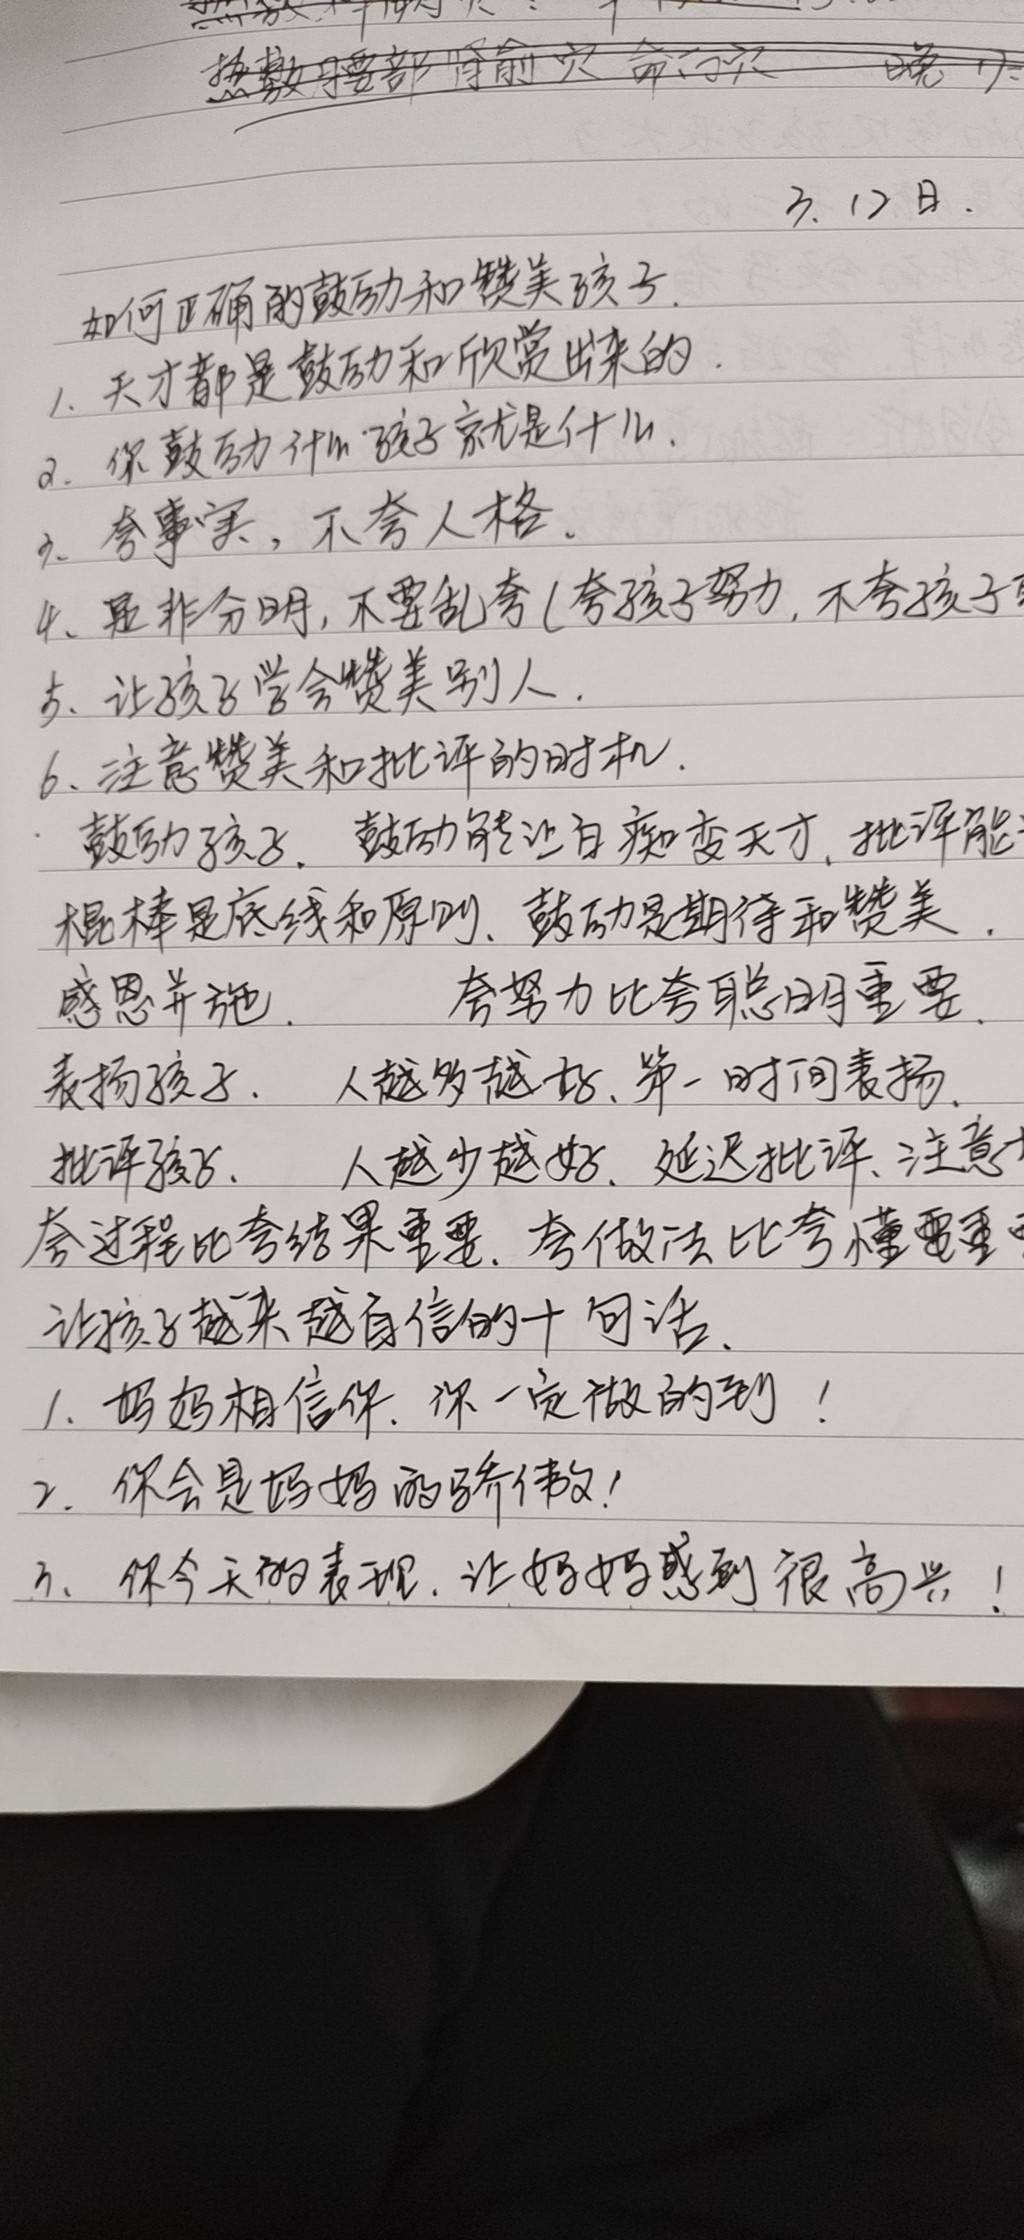 热敷腰部肾俞穴 命门穴 晚
3.12日.
如何正确的鼓励和赞美孩子.
1. 天才都是鼓励和欣赏出来的.
2. 你鼓励什么孩子就是什么.
3. 夸事实，不夸人格.
4. 是非分明，不要乱夸(夸孩子努力，不夸孩子
5. 让孩子学会赞美别人.
6. 注意赞美和批评的时机.
鼓励孩子. 鼓励能让白痴变天才、批评能
棍棒是底线和原则、鼓励是期待和赞美.
感恩并施. 夸努力比夸聪明重要.
表扬孩子. 人越多越好、第一时间表扬.
批评孩子. 人越少越好. 延迟批评、注意
夸过程比夸结果重要. 夸做法比夸懂要重
让孩子越来越自信的十句话.
1. 妈妈相信你. 你一定做的到！
2. 你会是妈妈的骄傲！
3. 你今天的表现. 让妈妈感到很高兴！